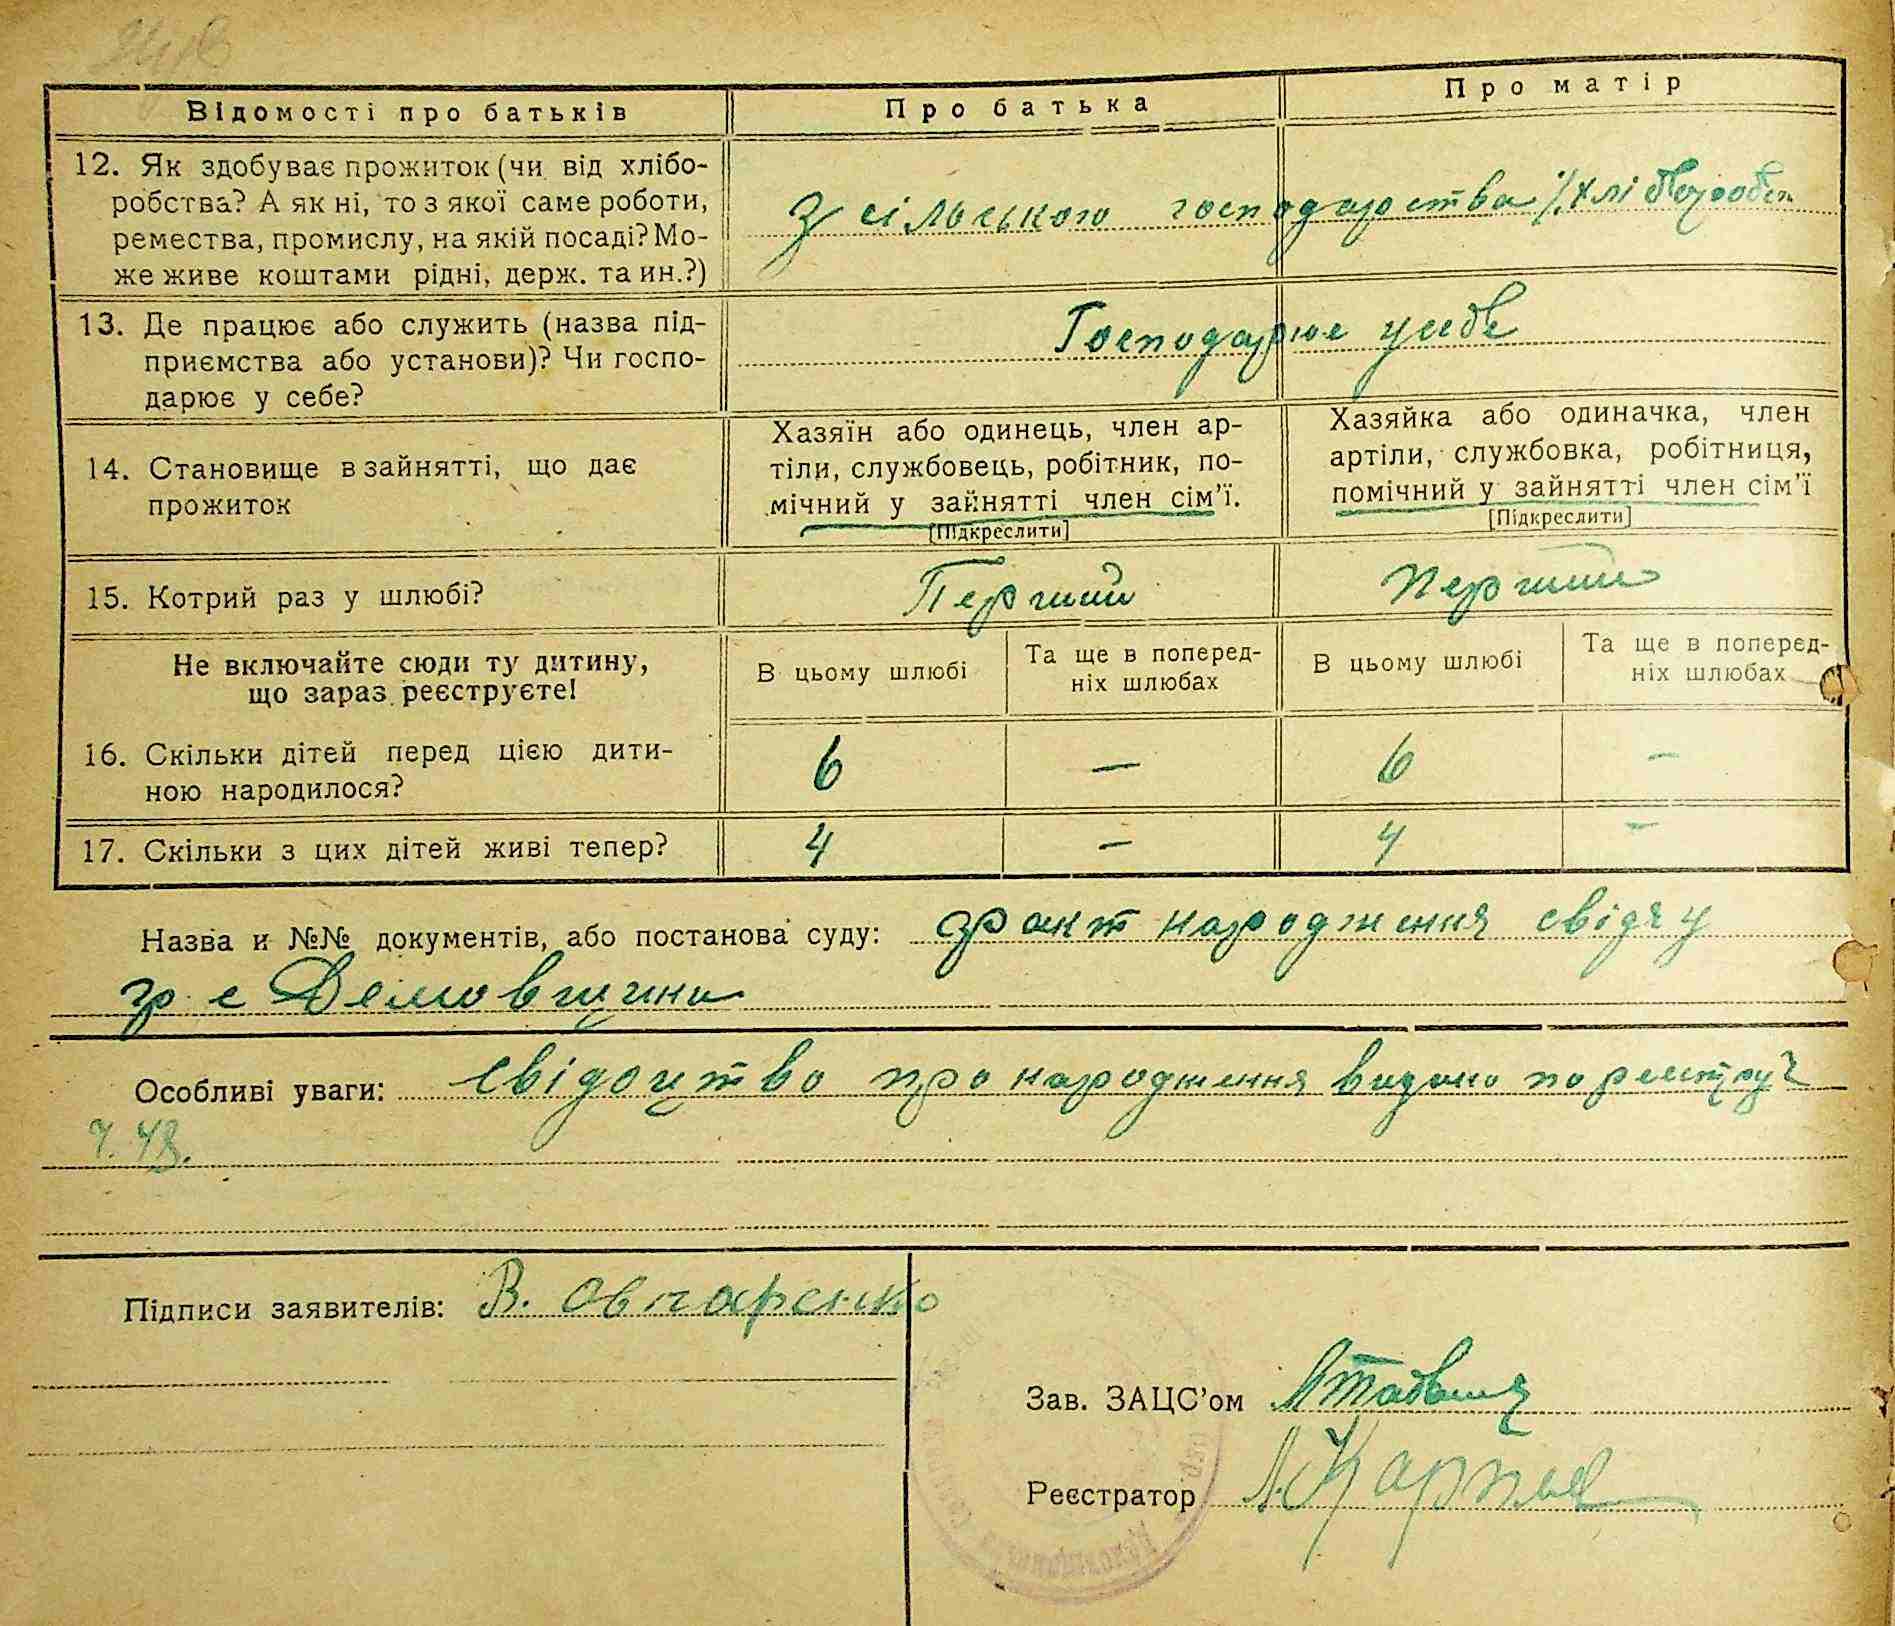 Відомості про батьків
Про батька
Про матір
12. Як здобуває прожиток (чи від хлібо-
робства? А як ні, то з якої саме роботи,
ремества, промислу, на якій посаді? Мо-
же живе коштами рідні, держ. та ин.?)
З сільського господарства
13. Де працює або служить (назва під-
приємства або установи)? Чи госпо-
дарює у себе?
Господарює у себе
14. Становище в зайнятті, що дає
прожиток
Хазяїн або одинець, член ар-
тіли, службовець, робітник, по-
мічний у зайнятті член сім'ї.
[Підкреслити]
Хазяйка або одиначка, член
артіли, службовка, робітниця,
помічний у зайнятті член сім'ї
[Підкреслити]
15. Котрий раз у шлюбі?
Перший
Перший
Не включайте сюди ту дитину,
що зараз реєструєте!
В цьому шлюбі
Та ще в поперед-
ніх шлюбах
В цьому шлюбі
Та ще в поперед-
ніх шлюбах
16. Скільки дітей перед цією дити-
ною народилося?
6 — 6 —
17. Скільки з цих дітей живі тепер?
4 — 4 —
Назва и №№ документів, або постанова суду: факт народження свідчу
гр. с Демовщина
Особливі уваги: свідоцтво про народження видано по реєстру
ч. 43.
Підписи заявителів: В. Овчаренко
Зав. ЗАЦС'ом
Реєстратор